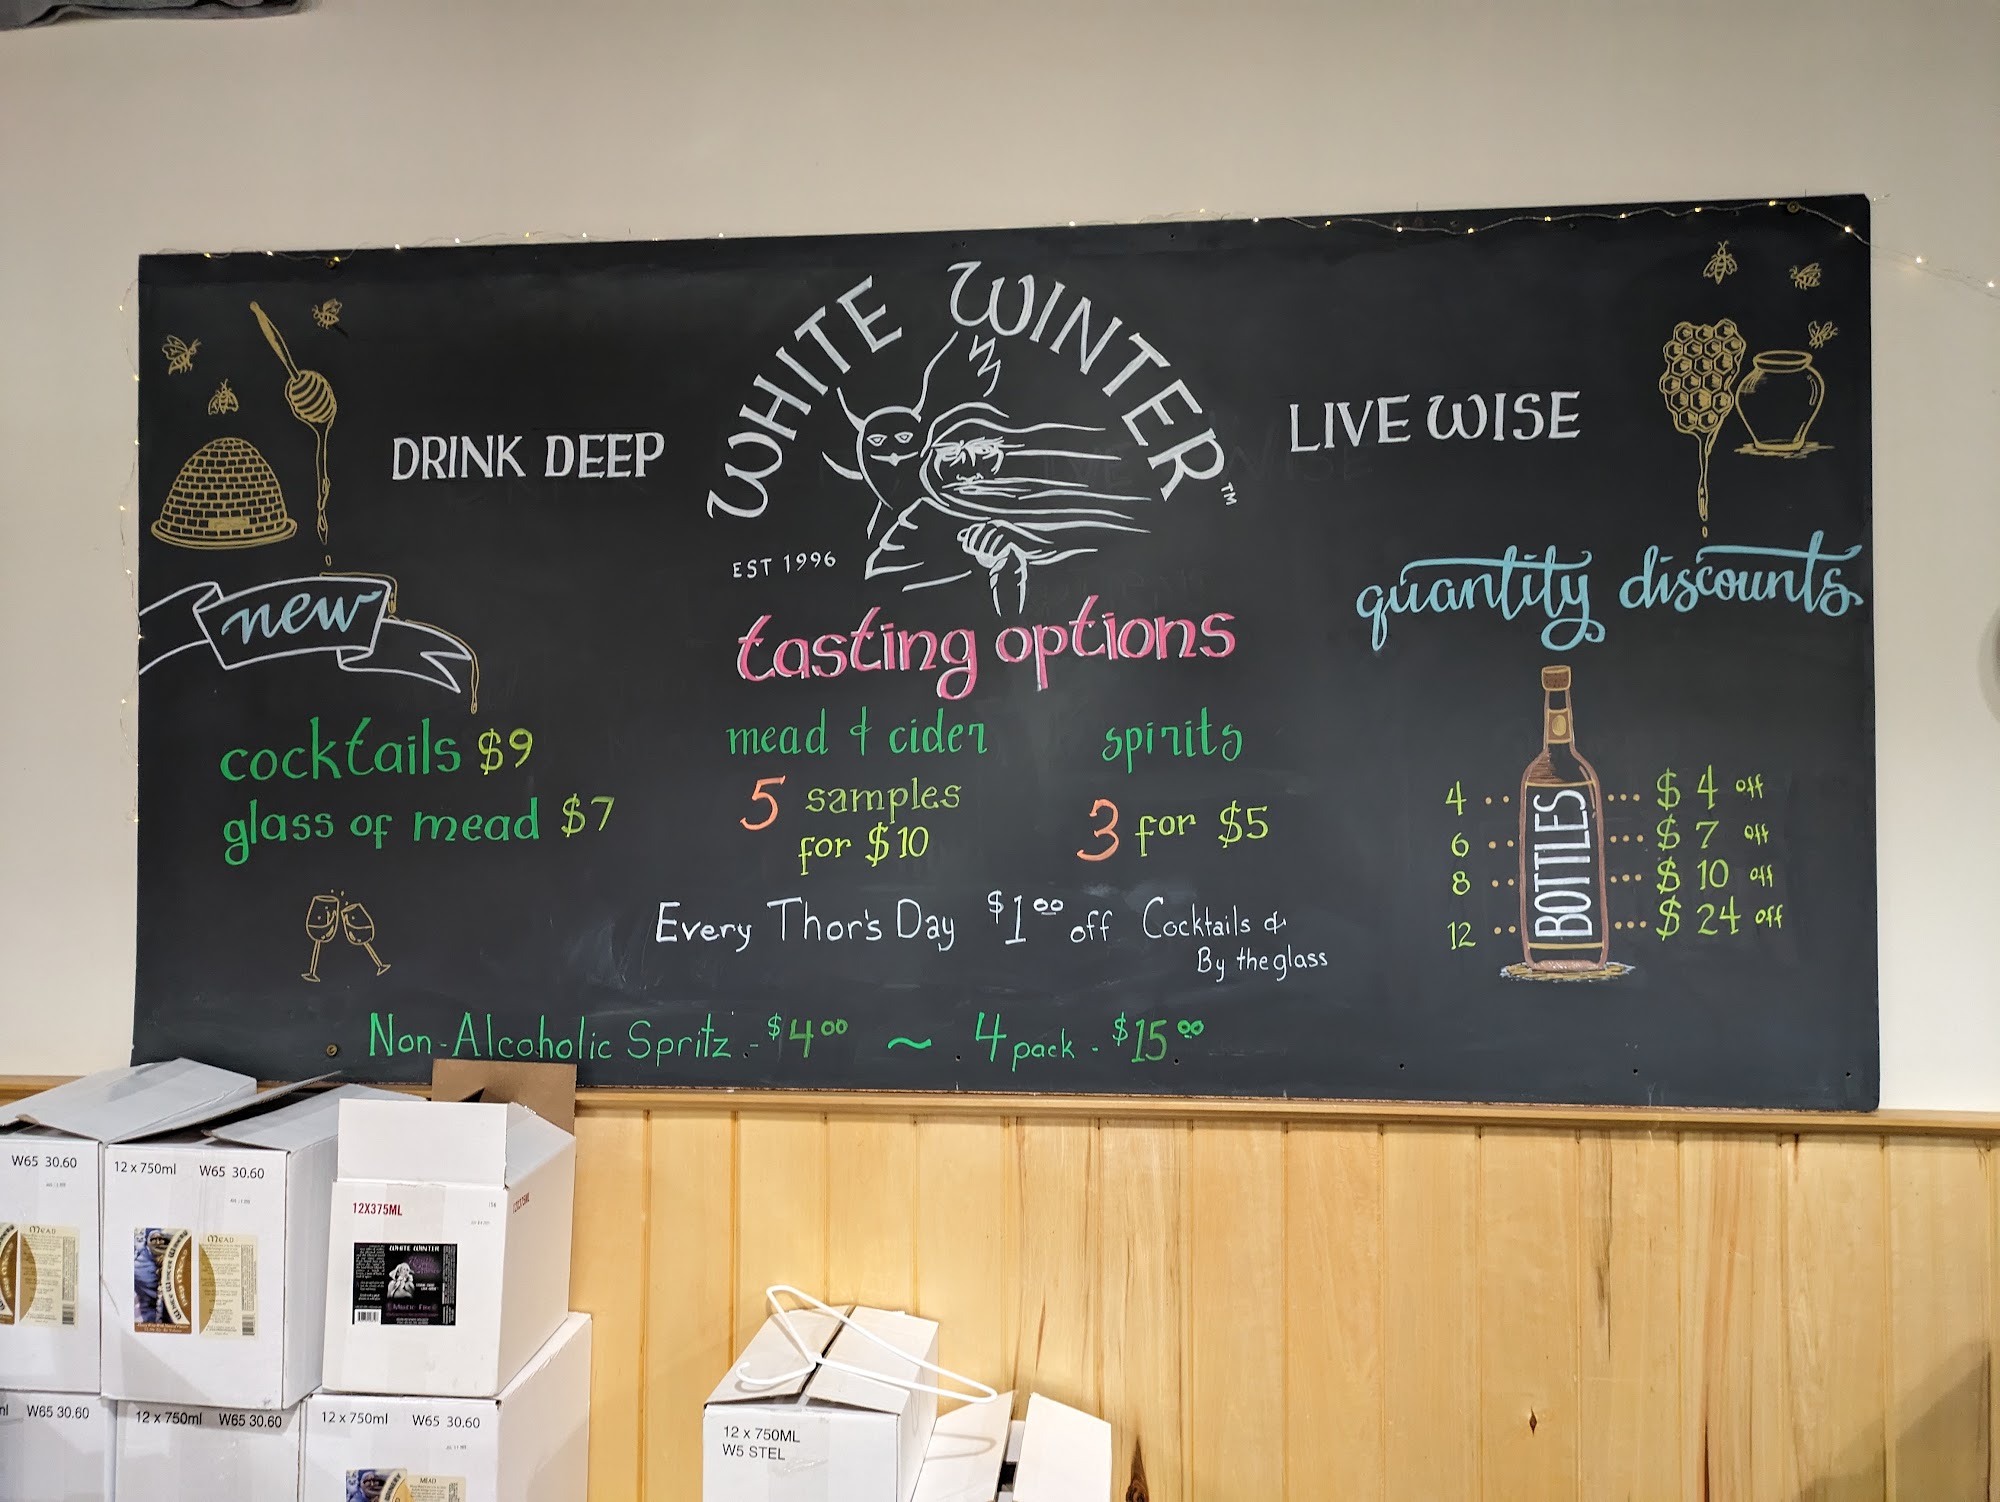 WHITE WINTER™
DRINK DEEP
LIVE WISE
EST 1996
new
cocktails $9
glass of mead $7
tasting options
mead & cider
5 samples
for $10
spirits
3 for $5
quantity discounts
BOTTLES
4 ·· ··· $4 off
6 ·· ··· $7 off
8 ·· ··· $10 off
12 ·· ··· $24 off
Every Thor's Day $1.00 off Cocktails &
By the glass
Non-Alcoholic Spritz - $4.00 ~ 4 pack - $15.00
W65 30.60
12 x 750ml W65 30.60
12X375ML
MEAD
MEAD
WHITE WINTER
W65 30.60
12 x 750ml W65 30.60
12 x 750ml W65 30.60
MEAD
12 x 750ML
W5 STEL